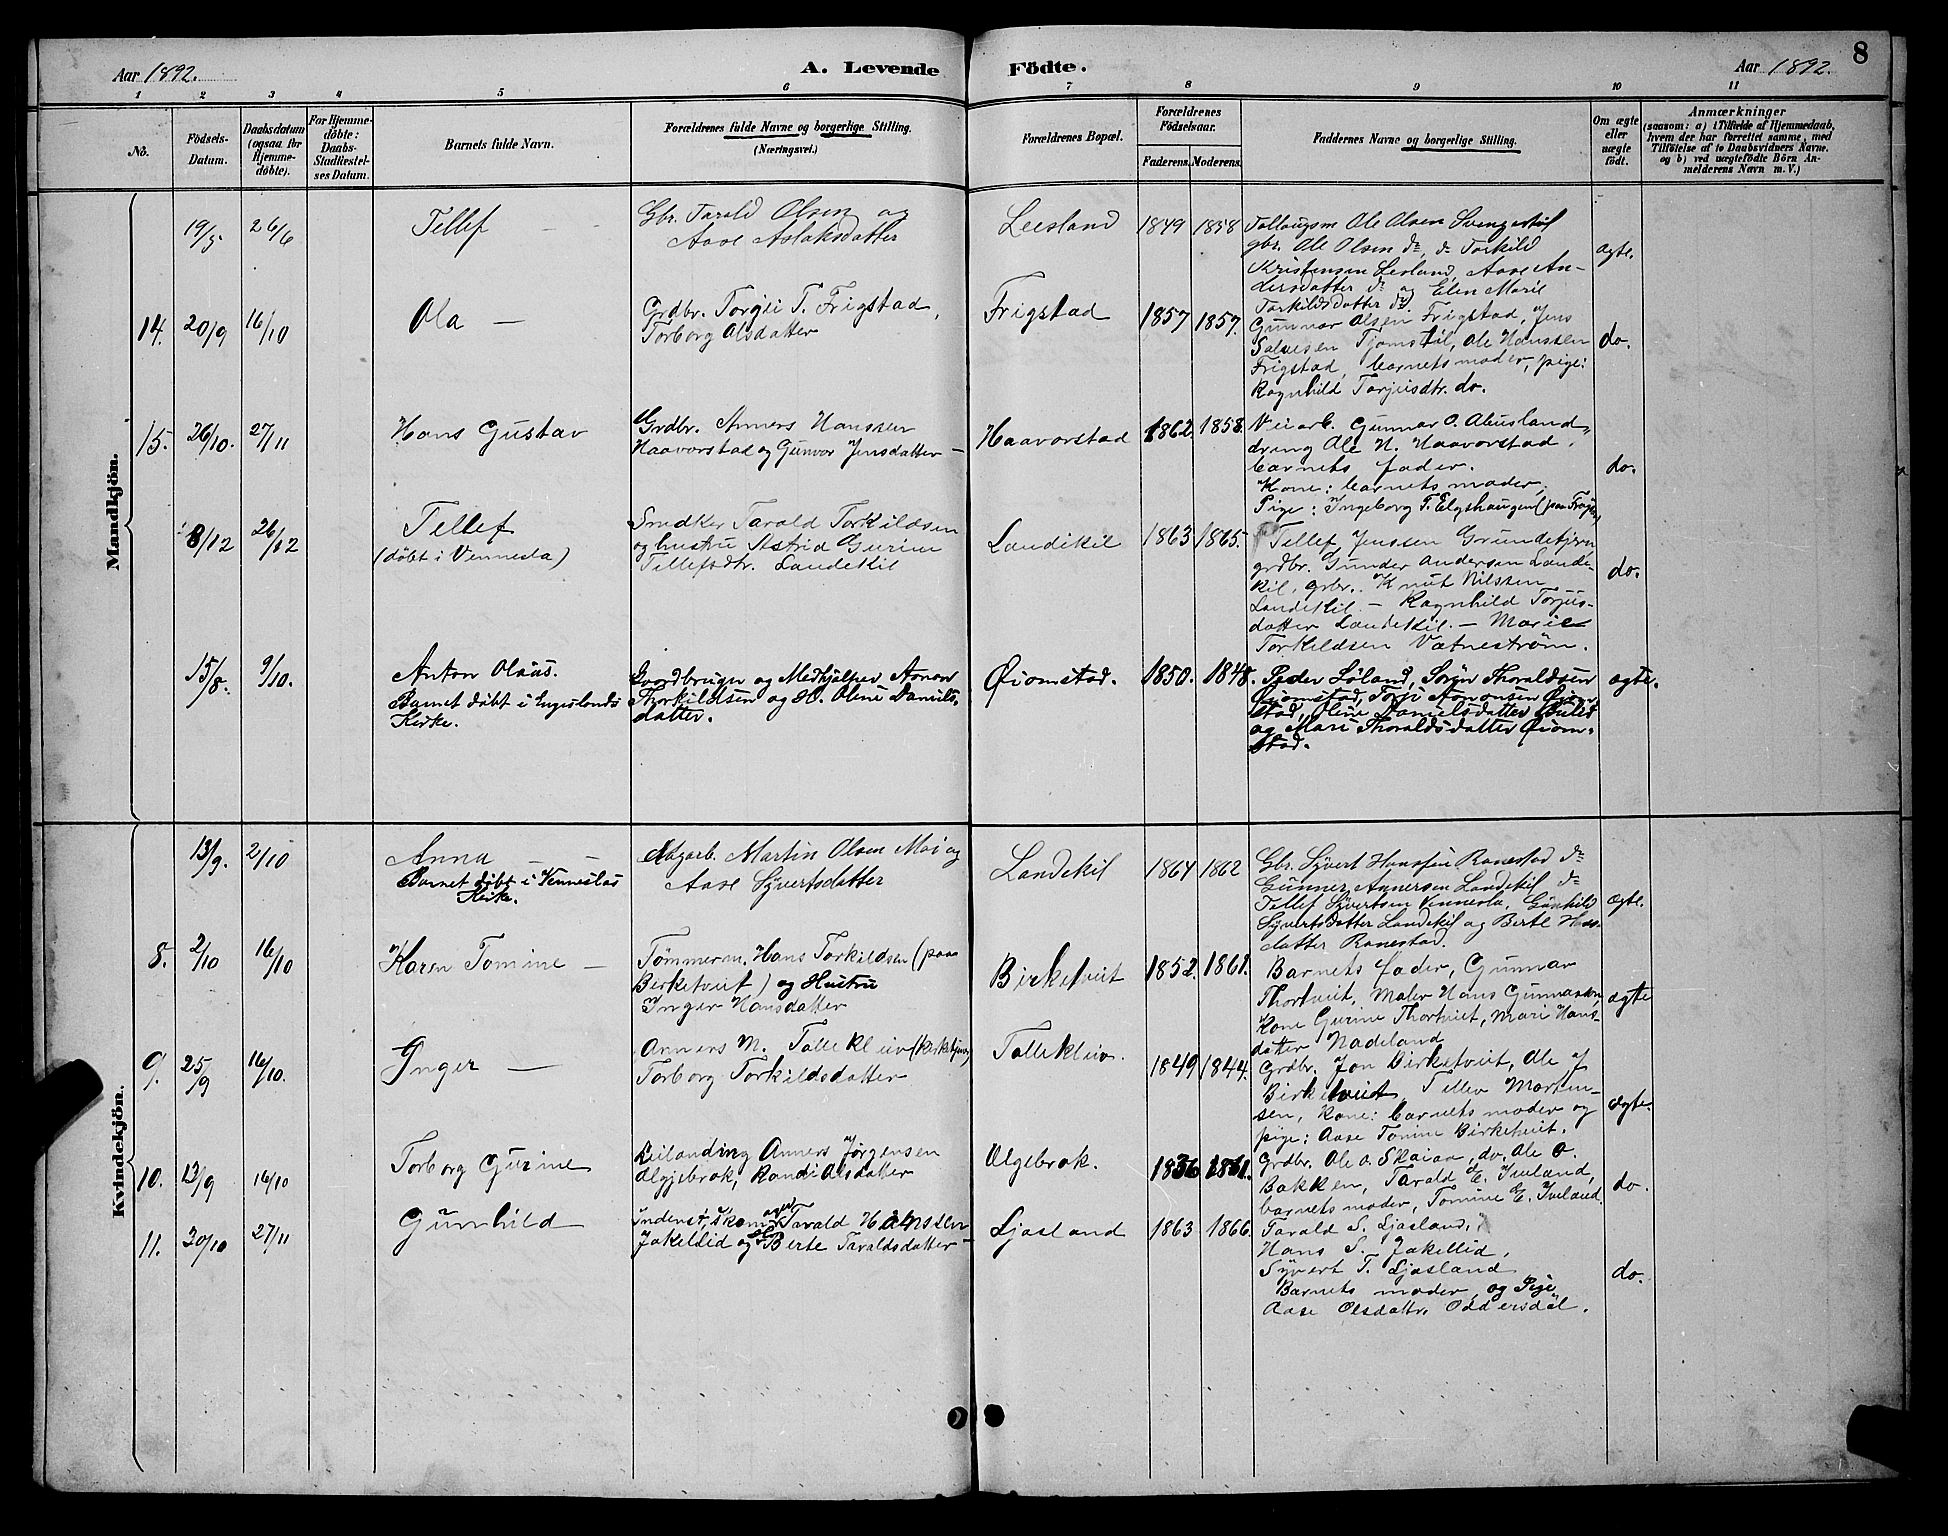 8
Aar 1892.
A. Levende Födte.
Aar 1892.
1 2 3 4 5 6 7 8 9 10 11
No.
Födsels-Datum.
Daabsdatum (ogsaa for Hjemme-döbte).
For Hjemme-döbte: Daabs-Stadfestel-ses Datum.
Barnets fulde Navn.
Forældrenes fulde Navne og borgerlige Stilling.
(Næringsvei.)
Forældrenes Bopæl.
Forældrenes Födselsaar.
Faderens. Moderens.
Faddernes Navne og borgerlige Stilling.
Om ægte eller uægte födt.
Anmærkninger
(saasom: a) i Tilfælde af Hjemmedaab, hvem der har forrettet samme, med Tilföielse af to Daabsvidners Navne. og b) ved uægtefödte Börn An-melderens Navn m. V.)
Mandkjön.
19/5. 26/6
Tellef —
Gbr. Tarald Olsen og
Aase Aslaksdatter
Leesland
1849 1858
Ole Olsen
gbr. Ole Olsen do, do Torkild
Kristensen Lesland, Aase An-
dersdatter do og Elen Marie
Torkildsdatter do
ægte.
14. 20/9 16/10
Ola —
Grdbr. Torgei T. Frigstad,
Torborg Olsdatter
Frigstad
1857 1857.
Gunnar Olsen Frigstad, Jens
Salvesen Tjomstøl, Ole Hanssen
Frigstad, barnets moder, pige:
Ragnhild Torjusdtr. do.
do.
15. 26/10. 27/11
Hans Gustav
Grdbr. Anners Hanssen
Haavorstad og Gunvor Jensdatter —
Haavorstad
1862. 1858.
Veiarb. Gunnar O. Abusland,
dreng Ole H. Haavorstad.
barnets fader.
Kone: barnets moder,
Pige: Ingeborg T. Elgshaugen
do.
8/12 26/12
Tellef
(døbt i Vennesla)
Snedker Tarald Torkildsen
og hustru Astrid Gurine
Tellefsdtr. Landekil
Landikil
1863 1865.
Tellef Jenssen Grundetjern
grdbr. Gunder Andersen Lande-
kil, grbr. Knut Nilssen
Landekil. — Ragnhild Torjus-
datter Landekil. — Marie
Torkildsen Vatnestrøm.
do.
15/8. 9/10.
Anton Olaus.
Barnet døbt i Engeslands
Kirke.
Gaardbruger og Medhjælper Aanon
Thorkildsen og H. Olene Daniels-
datter.
Øiomstad.
1850. 1848.
Peder Løland, Søren Thoraldsen
Øiomstad, Torji Aanonsen Øiom-
stad, Oline Danielsdatter
og Mari Thoraldsdatter Øiom-
stad.
ægte.
Kvindekjön.
13/9. 2/10
Anna — —
Barnet døbt i Venneslas
Kirke.
Martin Olsen Moi og
Aase Syvertsdatter
Landekil
1864 1862
Gbr. Syvert Hanssen Ronestad do
Gunner Annersen Landekil do
Tellef Syvertsen Vennesla, Gunhild
Syvertsdatter Landekil og Berte Hans-
datter Ronestad.
ægte.
8. 2/10 16/10
Karen Tomine —
Tømmerm. Hans Torkildsen (paa
Birketveit) og Hustru
Inger Hansdatter
Birketveit
1852. 1861.
Barnets fader, Gunnar
Thortveit, Maler Hans Gunnarsen,
Kone Gurine Thortveit, Mari Hans-
datter Nadeland
ægte
9. 25/9 16/10.
Inger —
Anners M. Tollekleiv (Kirketjener)
Torborg Torkildsdatter
Tollekleiv.
1849 1844.
Grdbr. Jon Birketveit, Ole J
Birketveit, Tellev Morten-
sen, kone: barnets moder og
pige: Aase Tomine Birketveit.
ægte.
10. 13/9 16/10
Torborg Gurine
Leilænding Anners Jørgensen
Ulgjebrok, Randi Olsdatter
Ulgebrok.
1836 1861.
Grdbr. Ole O. Skaiaa, do. Ole O.
Bakken, Tarald E. Iveland,
barnets moder, Tomine E. Iveland.
do.
11. 30/10 27/11
Gunhild
Inderst, Skomager Tarald Hanssen
Jakellid og Berte Taraldsdatter —
Ljosland
1863 1866.
Tarald S. Ljosland,
Hans S. Jakellid.
Syvert T. Ljosland
Barnets moder, og Pige
Aase Olsdattr. Oddersdal.
do.